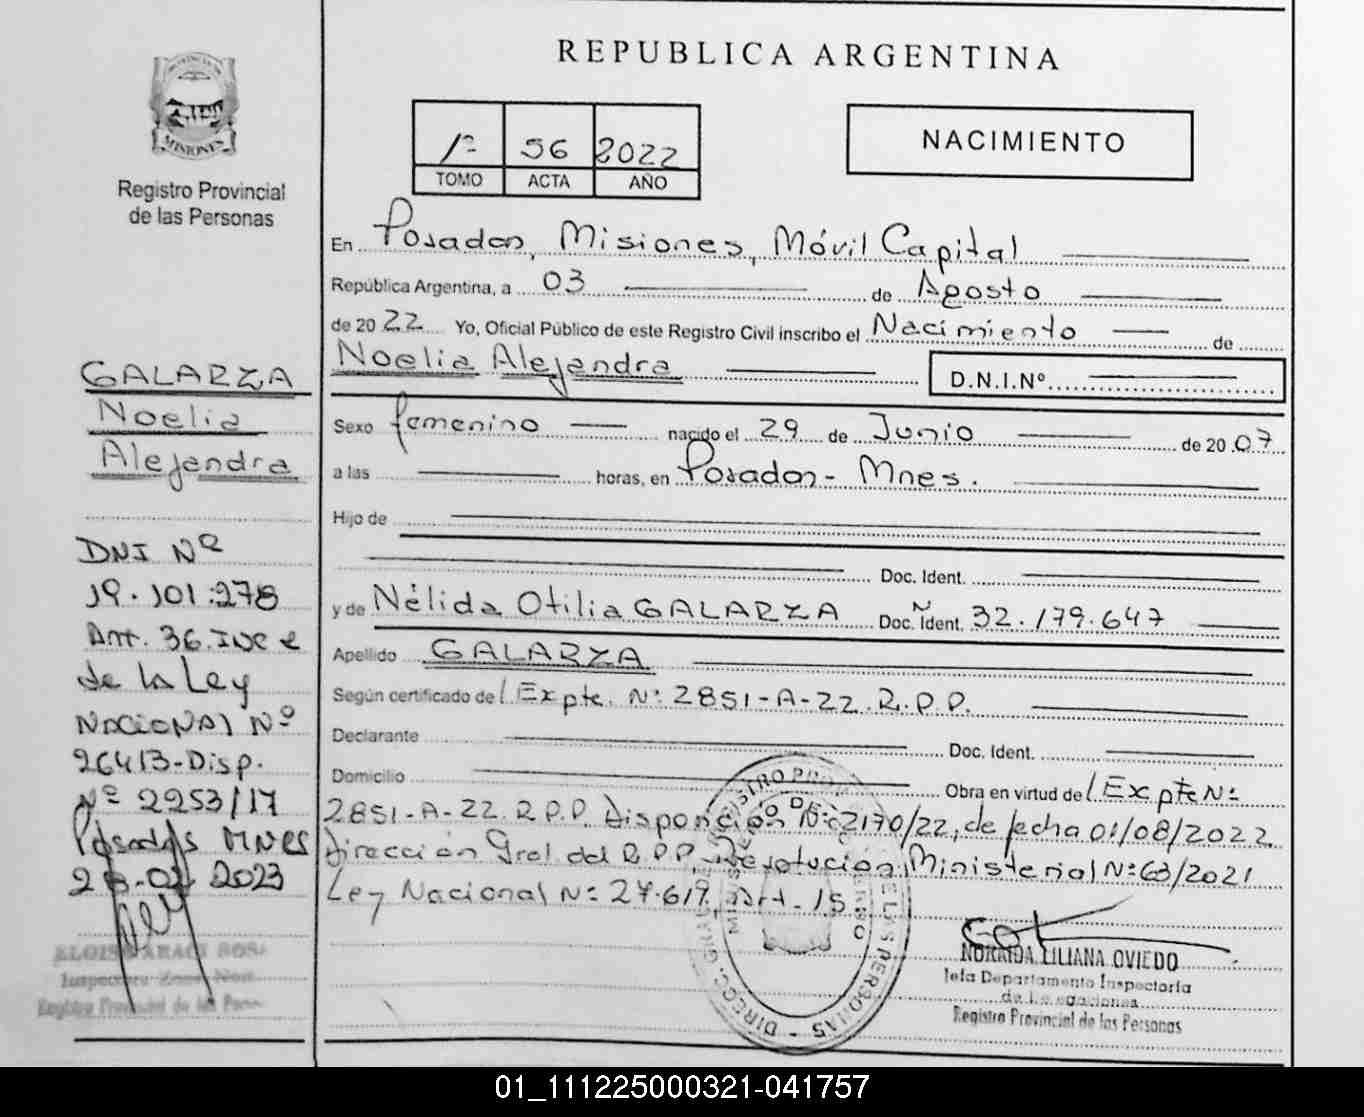 REPUBLICA ARGENTINA
MISIONES
Registro Provincial
de las Personas
1º 56 2022
TOMO ACTA AÑO
NACIMIENTO
En Posadas, Misiones, Móvil Capital
República Argentina, a 03 de Agosto
de 2022 Yo, Oficial Público de este Registro Civil inscribo el Nacimiento de
Noelia Alejandra D.N.I.Nº
Sexo femenino nacido el 29 de Junio de 2007
a las horas, en Posadas - Mnes.
Hijo de
Doc. Ident.
y de Nélida Otilia GALARZA Doc. Ident. Nº 32.179.647
Apellido GALARZA
Según certificado de Expte. Nº 2851-A-22.R.P.P.
Declarante Doc. Ident.
Domicilio Obra en virtud de Expte Nº
2851-A-22.R.P.P. Disposición Nº 2170/22, de fecha 01/08/2022
Dirección Gral. del R.P.P. Resolución Ministerial Nº 63/2021
Ley Nacional Nº 27.619, Art. 15.
GALARZA
Noelia
Alejandra
DNI Nº
19.101.278
Art. 36. Inc e
de la Ley
Nacional Nº
26413-Disp.
Nº 2253/17
Posadas Mnes
2023
Registro Provincial de las
NORAIDA LILIANA OVIEDO
Jefa Departamento Inspectoria
de
Registro Provincial de las Personas
DE LAS PERSONAS - DIRECC. GRAL.
01_111225000321-041757